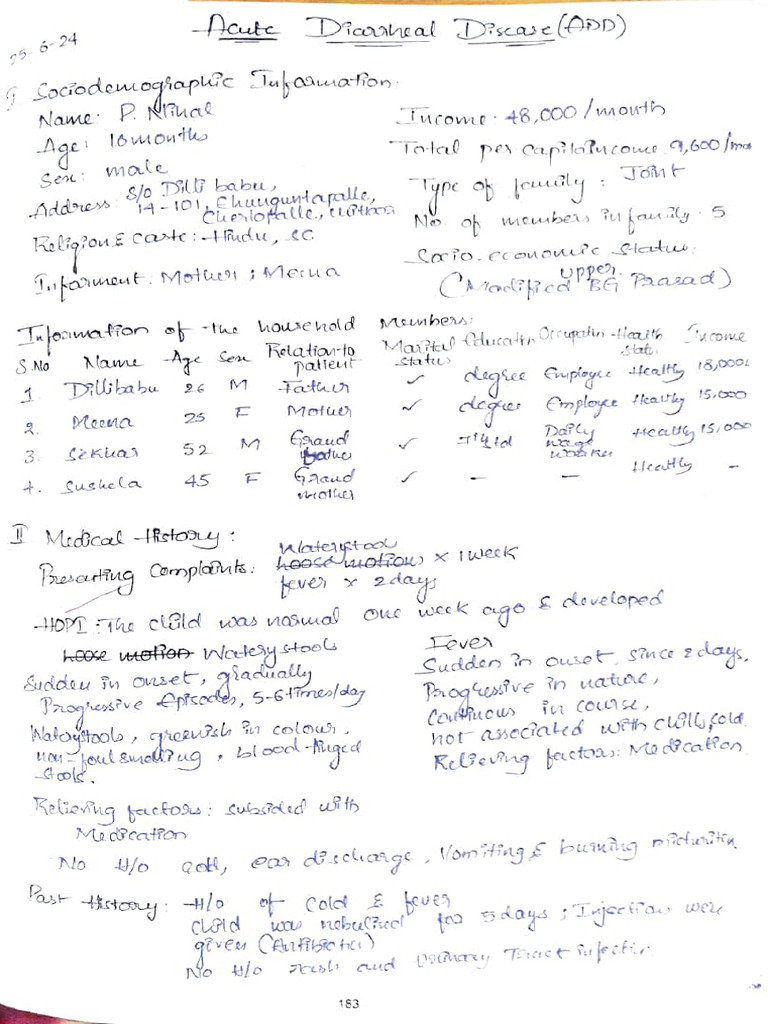 25-6-24
Acute Diarrheal Disease (ADD)
I Sociodemographic Information.
Name: P. Nihal
Age: 10 months
Sex: male
Address: S/o Dilli babu,
14-101, 
Religion & Caste: Hindu, SC
Informent: Mother; Meena
Income: 48,000/month
Total per capita income: 9,600/mo
Type of family: Joint
No. of members in family: 5
Socio-economic Status:
upper
(Modified BG Prasad)
Information of the household Members:
S.No Name Age Sex Relation to patient Marital Status Education Occupation Health Stat. Income
1. Dillibabu 26 M Father ✓ degree Employee Healthy 18,000
2. Meena 25 F Mother ✓ degree Employee Healthy 15,000
3. Sekhar 52 M Grand father ✓ Daily wage worker Healthy 15,000
4. Sushela 45 F Grand mother ✓ - - Healthy -
II Medical History:
Watery stools
Presenting Complaints: loose motions x 1 week
fever x 2 days
HOPI: The child was normal one week ago & developed
loose motion Watery stools
Sudden in onset, gradually
Progressive Episodes, 5-6 times/day
Watery stools, greenish in colour,
non-foul smelling, blood-tinged
stools.
Relieving factors: subsided with
Medication
Fever
Sudden in onset, since 2 days,
Progressive in nature,
Continuous in course,
not associated with chills, cold
Relieving factors: Medication
No H/o , ear discharge, Vomiting & burning micturition
Past History: H/o of cold & fever
child was nebulized for 5 days; Injections were
given (Antibiotic)
No H/o rash and Urinary Tract infection
183